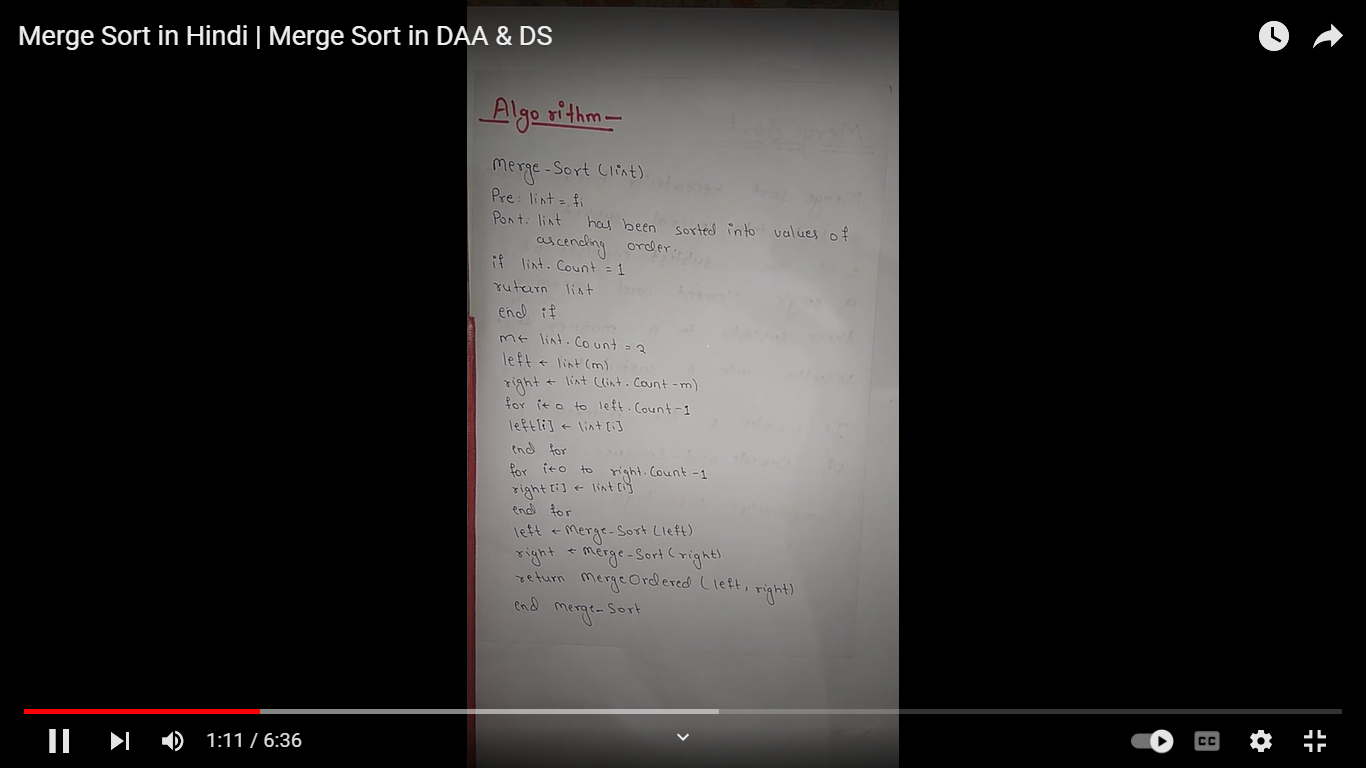 Merge Sort in Hindi | Merge Sort in DAA & DS
Algorithm-
Merge-Sort (list)
Pre: list = fi
Post. list has been sorted into values of
ascending order.
if list. Count = 1
ruturn list
end if
m← list. Count = 2
left ← list (m)
right ← list (list. Count -m)
for i←0 to left. Count-1
left[i] ← list [i]
end for
for i←0 to right. Count -1
right [i] ← list [i]
end for
left ← Merge-Sort (left)
right ← Merge-Sort (right)
return MergeOrdered ( left, right)
end Merge-Sort
1:11 / 6:36
CC